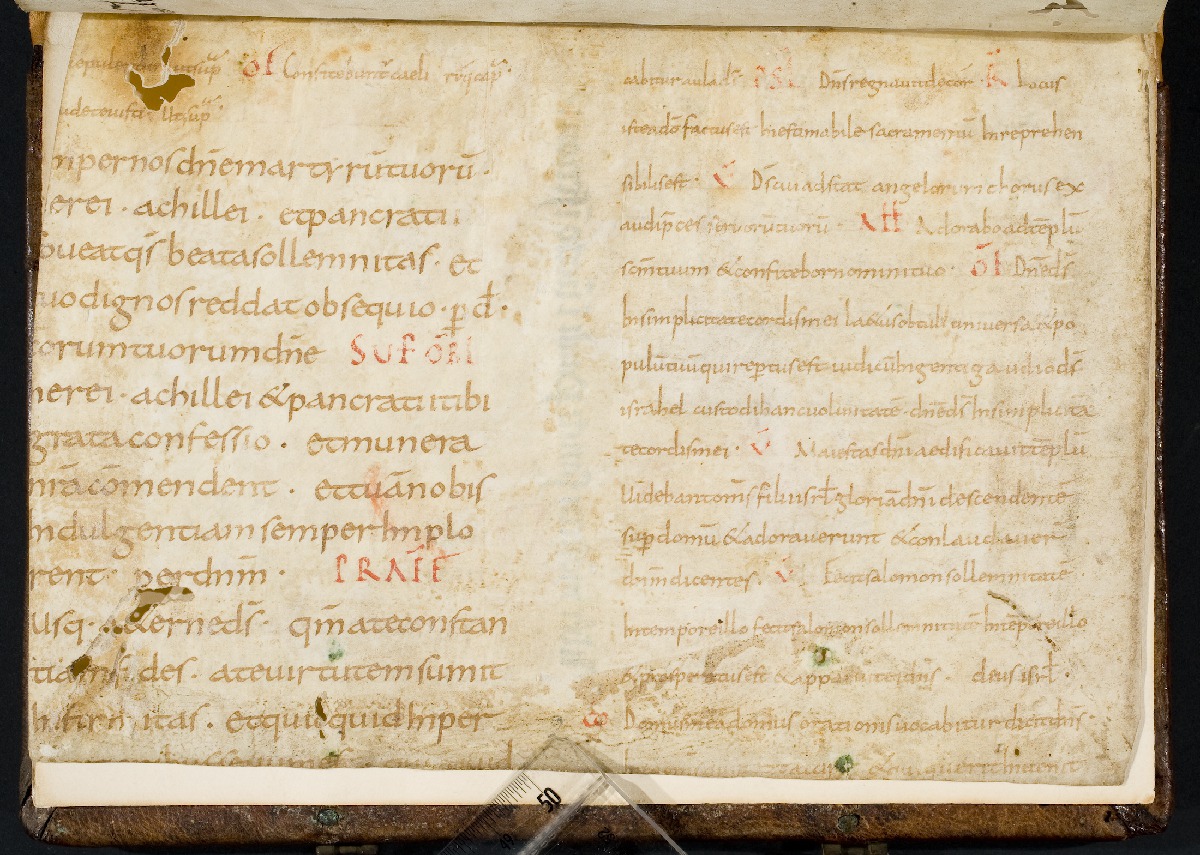 utsup OF Confitebunt caeli rꝶ cap
Utsup
nper nos dn̄e martyrū tuorū ·
erei · achillei · et pancratii
oveat qs̄ beata sollemnitas · et
uo dignos reddat obsequio · p d̄ ·
orum tuorum dn̄e SUP OBL
nerei · achillei & pancratii tibi
grata confessio · et munera
nr̄a cōmendent · et tuā nobis
Indulgentiam semper Implo
rent · per dn̄m · PRAEF
Usq · aeterne ds̄ · qm̄ a te constan
tiam fides · a te virtutem sumit
Infirmitas · et quicquid In per
cabitur aula dī PSL Dn̄s regnavit decor · R Locus
iste a dō factus est Inestimabile sacramentū Inreprehen
sibilis est · V Ds̄ cui adstat angelorum chorus ex
audi p̄ces servorū tuorū · ALL Adorabo ad tēplū
sc̄m tuum & confitebor nomini tuo · OF Dn̄e ds̄
In simplicitate cordis mei laetus obtuli universa & po
pulū tuū qui repertus est vidi cū Ingenti gaudio ds̄
israhel custodi hanc voluntatē · dn̄e ds̄ In simplicita
te cordis mei · V Maiestas dn̄i aedificavit tēplū
Videbant om̄s filii isrl̄ gloriā dn̄i descendentē
sup domū & adoraverunt & conlaudaver
dn̄m dicentes · V Fecit salomon sollemnitatē
In tempore illo fecit salomon sollemnitatē In tēpore illo
& prosperatus est & apparuit ei dn̄s · deus isrl̄ ·
CO Domus mea domus orationis vocabitur dicit dn̄s ·
& qui querit Invenit